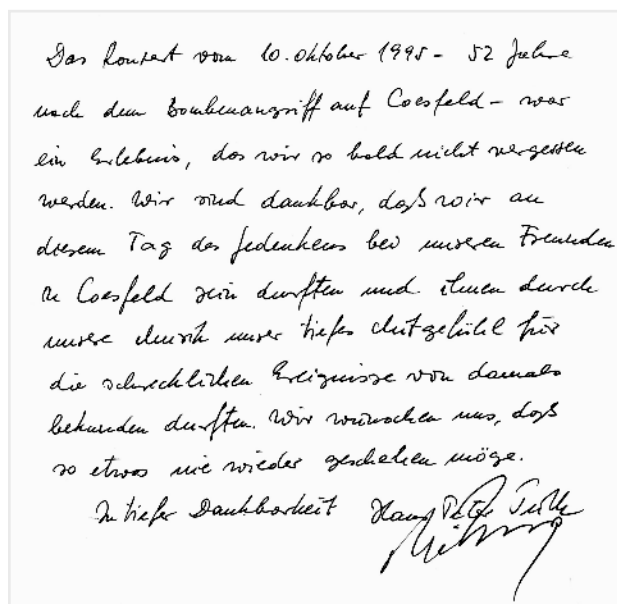 Das Konzert vom 10. Oktober 1995 - 52 Jahre
nach dem Bombenangriff auf Coesfeld - war
ein Erlebnis, das wir so bald nicht vergessen
werden. Wir sind dankbar, daß wir an
diesem Tag des Gedenkens bei unseren Freunden
in Coesfeld sein durften und ihnen durch
unsere Musik unser tiefes Mitgefühl für
die schrecklichen Ereignisse von damals
bekunden durften. Wir wünschen uns, daß
so etwas nie wieder geschehen möge.
In tiefer Dankbarkeit Hans Peter